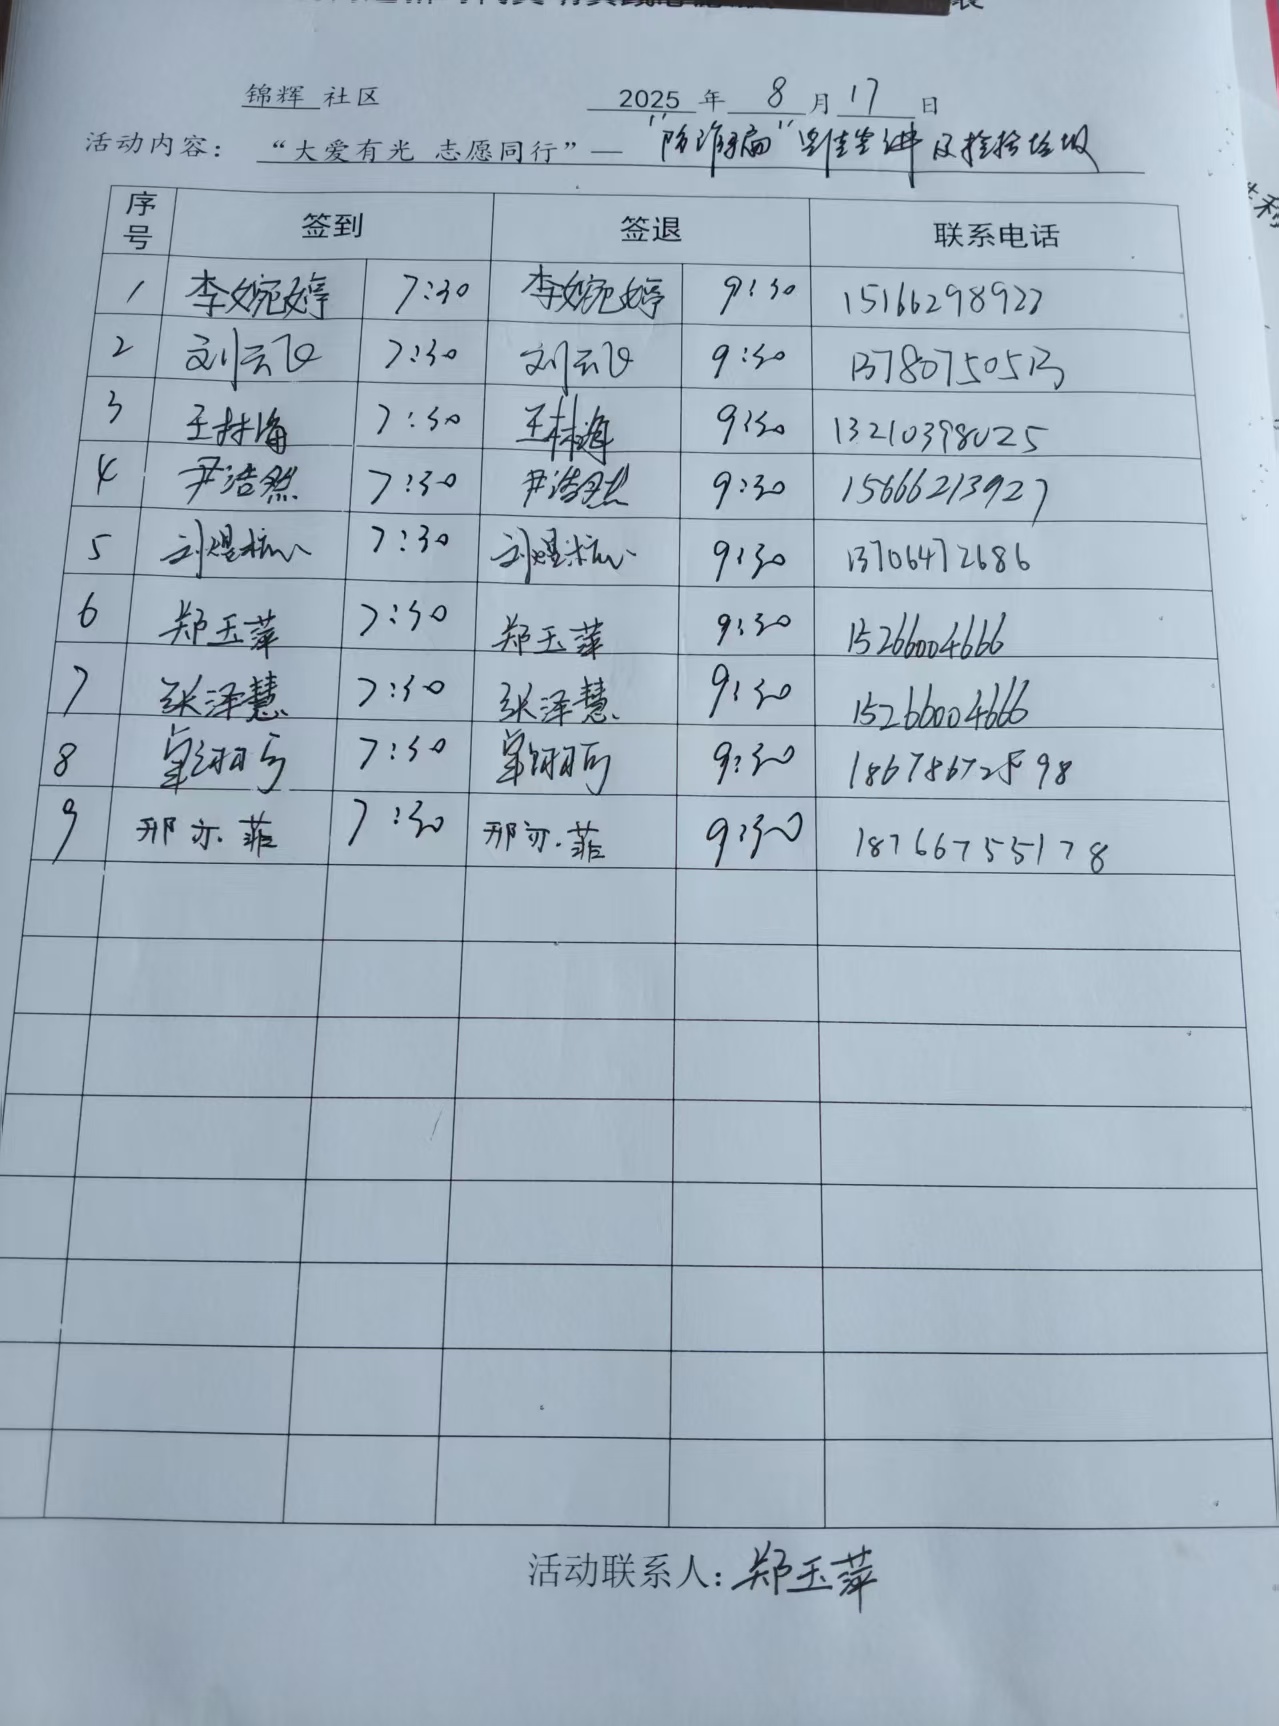 锦辉 社区 2025 年 8 月 17 日
活动内容： “大爱有光 志愿同行”— “防诈骗” 宣讲及捡拾垃圾
序号 签到 签退 联系电话
1 李婉婷 7:30 李婉婷 9:30 15166298927
2 刘云飞 7:30 刘云飞 9:30 13780750513
3 王林海 7:30 王林海 9:30 13210398025
4 尹浩然 7:30 尹浩然 9:30 15666213927
5 7:30 9:30 13706472686
6 郑玉萍 7:30 郑玉萍 9:30 15266004666
7 张泽慧 7:30 张泽慧 9:30 15266004666
8 7:30 9:30
9 邢亦菲 7:30 邢亦菲 9:30 18766755178
活动联系人：郑玉萍